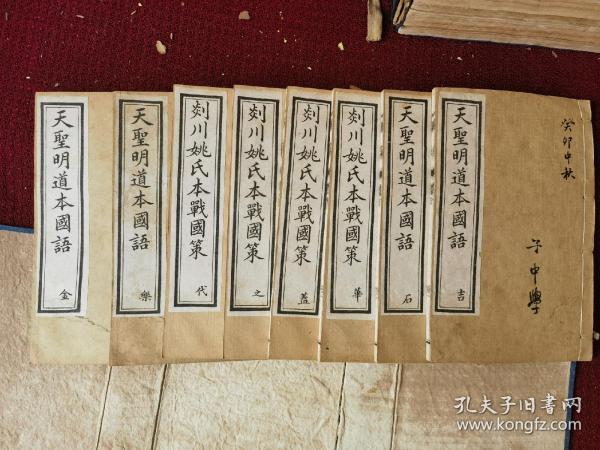 癸卯中秋
子中學
天聖明道本國語
吉
天聖明道本國語
石
剡川姚氏本戰國策
華
剡川姚氏本戰國策
蓋
剡川姚氏本戰國策
之
剡川姚氏本戰國策
代
天聖明道本國語
樂
天聖明道本國語
金
孔夫子旧书网
www.kongfz.com